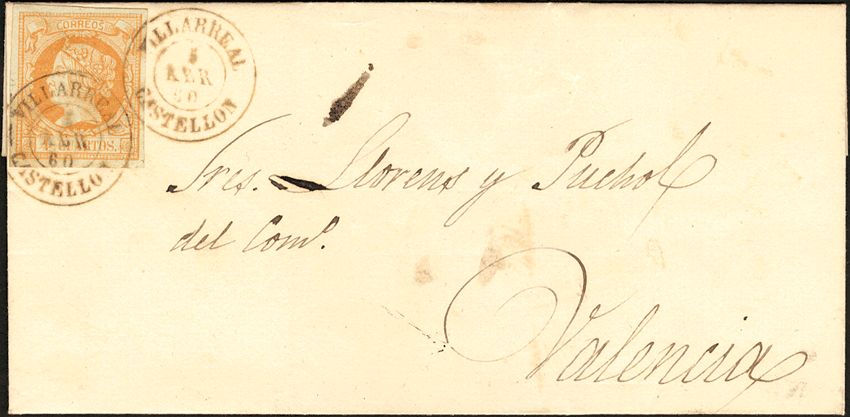 CORREOS
VILLARREAL
5
ABR
60
CASTELLON
VILLARREAL
ABR
60
CASTELLON
Sres. Llorens y Puchol
del Comº.
Valencia